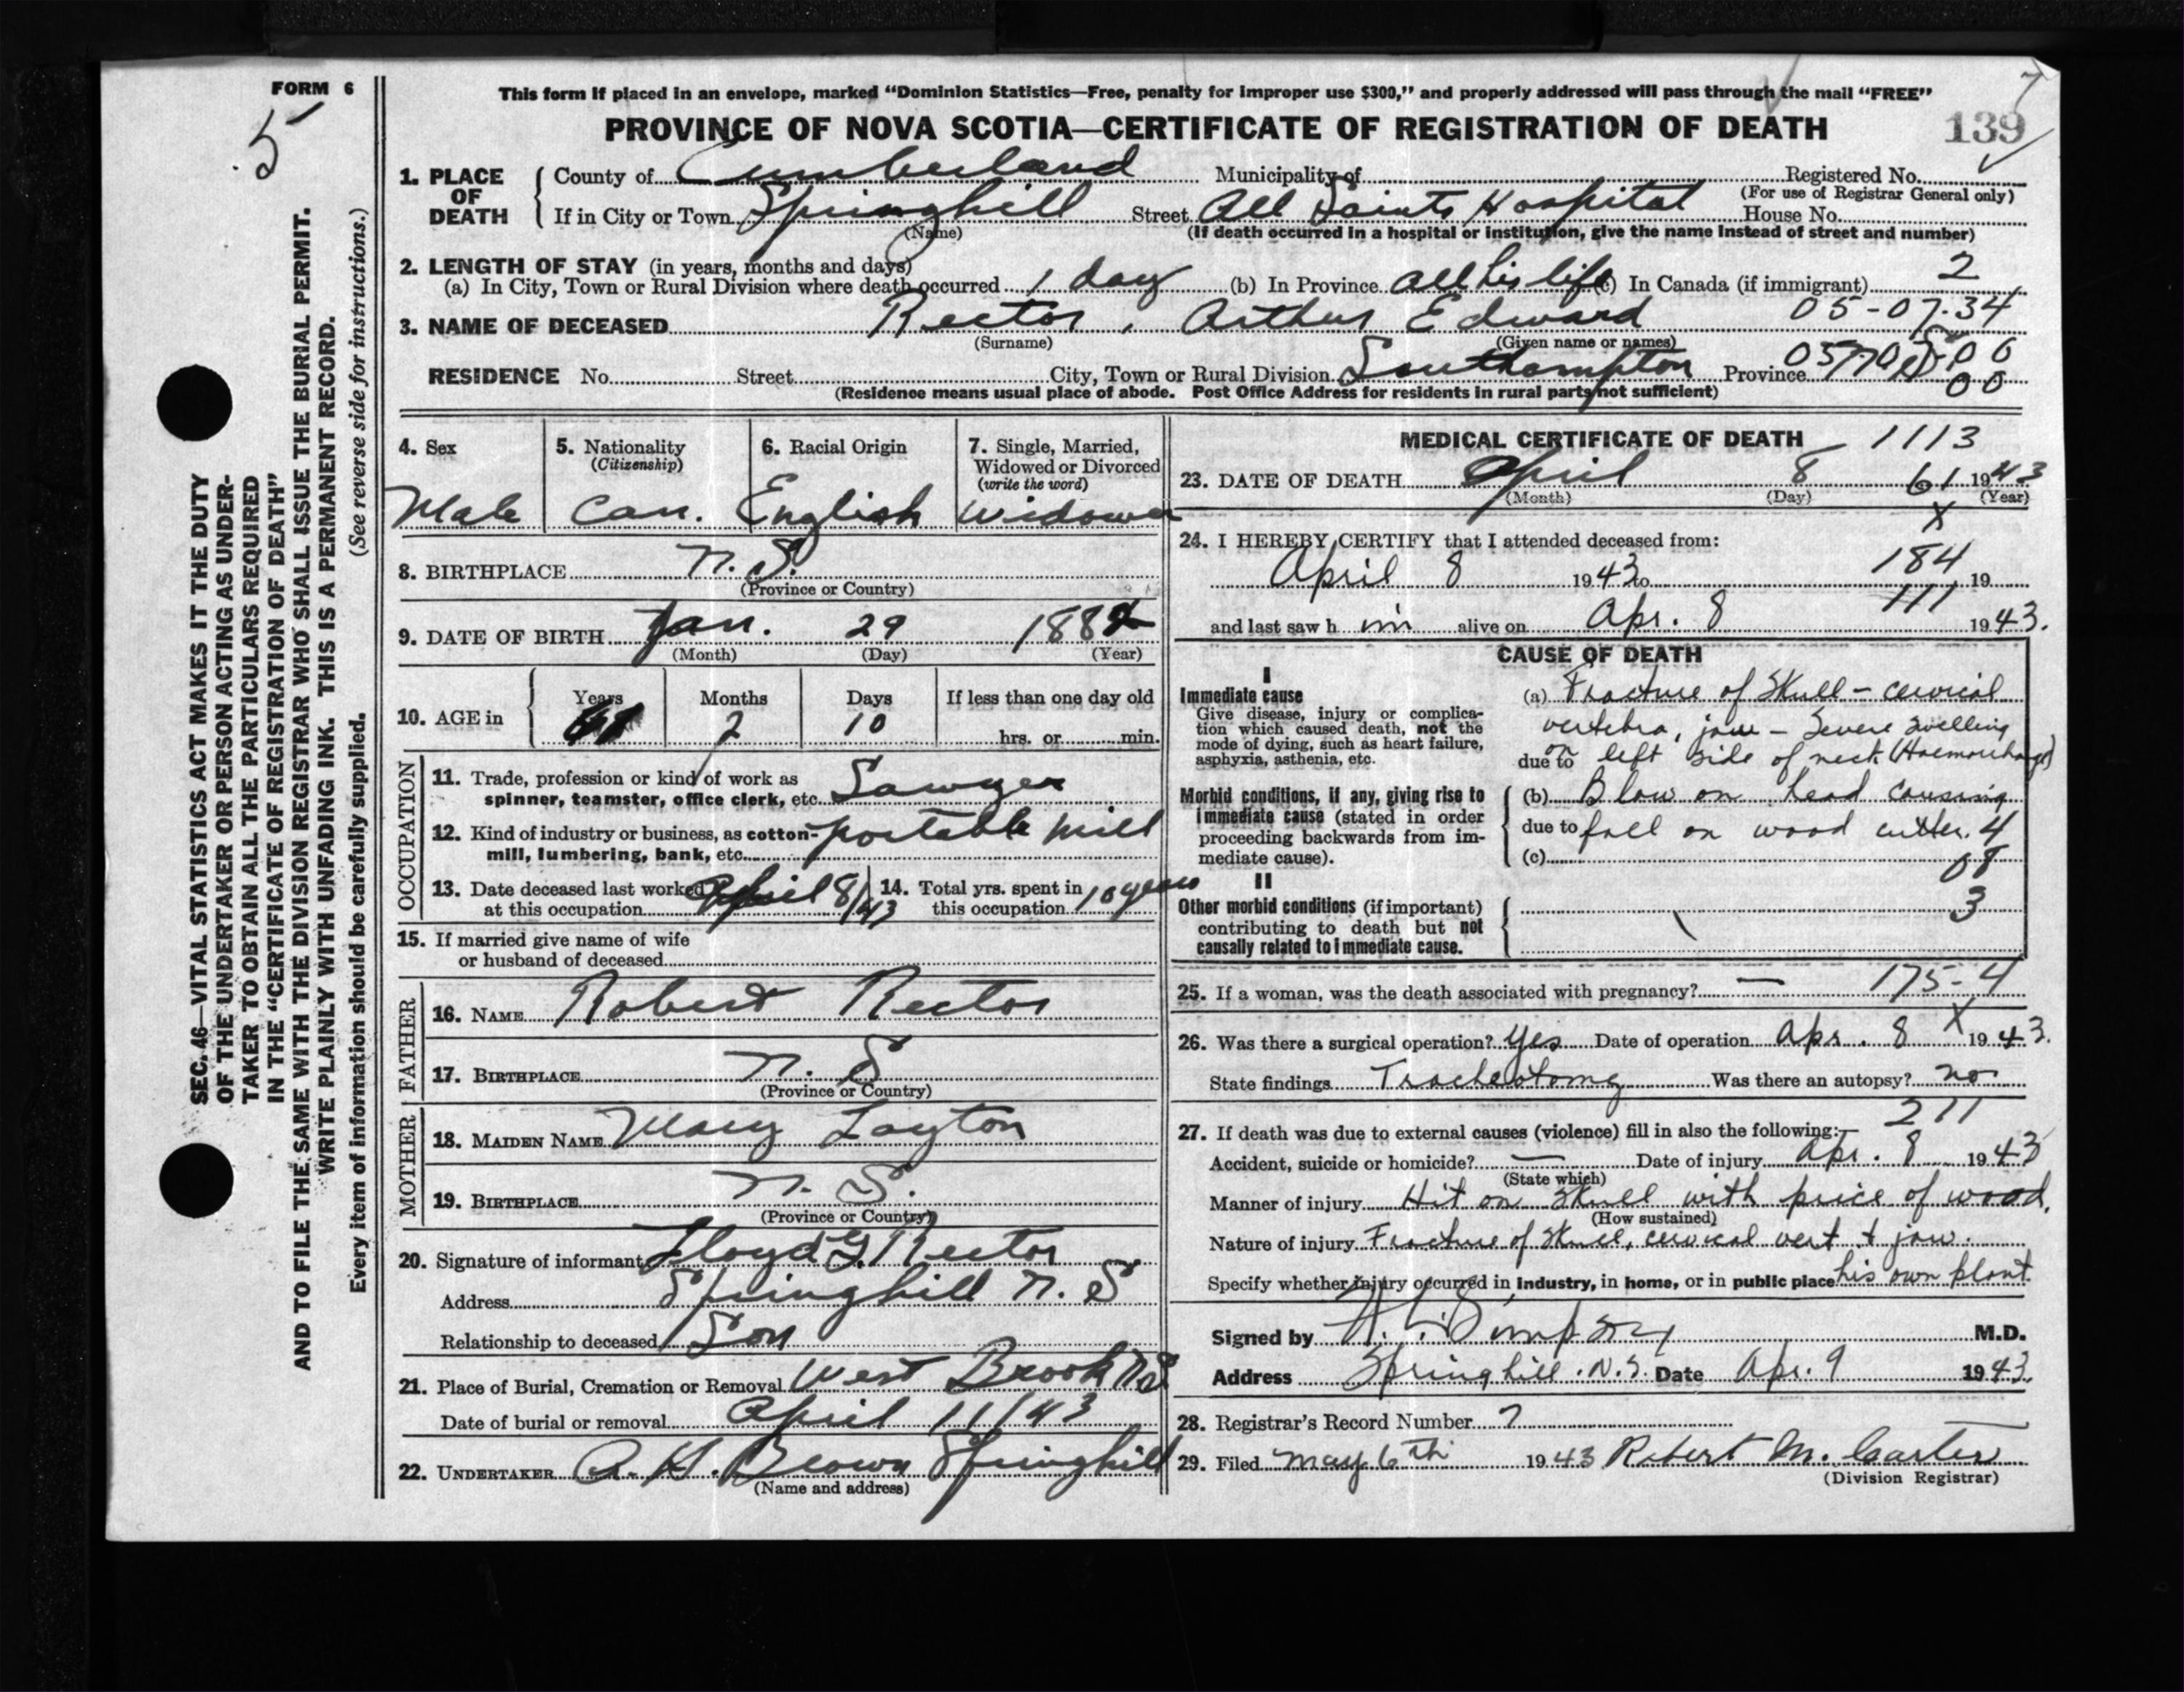 FORM 6
5
This form if placed in an envelope, marked “Dominion Statistics—Free, penalty for improper use $300,” and properly addressed will pass through the mail “FREE”
7
PROVINCE OF NOVA SCOTIA—CERTIFICATE OF REGISTRATION OF DEATH
139
1. PLACE OF DEATH
County of Cumberland Municipality of Registered No.
(For use of Registrar General only)
If in City or Town Springhill Street All Saints Hospital House No.
(Name) (If death occurred in a hospital or institution, give the name instead of street and number)
2. LENGTH OF STAY (in years, months and days)
(a) In City, Town or Rural Division where death occurred 1 day (b) In Province all his life (c) In Canada (if immigrant) 2
3. NAME OF DECEASED Rector, Arthur Edward 05-07-34
(Surname) (Given name or names)
RESIDENCE No. Street City, Town or Rural Division Southampton Province
(Residence means usual place of abode. Post Office Address for residents in rural parts not sufficient) 00
4. Sex 5. Nationality (Citizenship) 6. Racial Origin 7. Single, Married, Widowed or Divorced (write the word)
Male Can. English Widower
8. BIRTHPLACE N.S.
(Province or Country)
9. DATE OF BIRTH Jan. 29 1882
(Month) (Day) (Year)
10. AGE in Years Months Days If less than one day old
61 2 10 hrs. or min.
OCCUPATION
11. Trade, profession or kind of work as
spinner, teamster, office clerk, etc. Sawyer
12. Kind of industry or business, as cotton-
mill, lumbering, bank, etc. portable mill
13. Date deceased last worked at this occupation April 8/43 14. Total yrs. spent in this occupation 10 years
15. If married give name of wife
or husband of deceased
FATHER
16. NAME Robert Rector
17. BIRTHPLACE N. S
(Province or Country)
MOTHER
18. MAIDEN NAME Mary Layton
19. BIRTHPLACE N. S.
(Province or Country)
20. Signature of informant Floyd G. Rector
Address Springhill N. S
Relationship to deceased Son
21. Place of Burial, Cremation or Removal West Brook NS
Date of burial or removal April 11/43
22. UNDERTAKER A. H. Brown Springhill
(Name and address)
MEDICAL CERTIFICATE OF DEATH 1113
23. DATE OF DEATH April 8 61 1943
(Month) (Day) (Year)
X
24. I HEREBY CERTIFY that I attended deceased from:
April 8 1943 to 184 19
111
and last saw h im alive on Apr. 8 1943.
CAUSE OF DEATH
I
Immediate cause
Give disease, injury or complica-
tion which caused death, not the
mode of dying, such as heart failure,
asphyxia, asthenia, etc.
(a) Fracture of Skull - cervical
vertebra, jaw - Severe swelling
due to on left side of neck (Haemorrhage)
Morbid conditions, if any, giving rise to
immediate cause (stated in order
proceeding backwards from im-
mediate cause).
(b) Blow on head causing
due to fall on wood cutter. 4
(c)
08
II
Other morbid conditions (if important)
contributing to death but not
causally related to immediate cause.
3
25. If a woman, was the death associated with pregnancy? — 175-4
X
26. Was there a surgical operation? Yes Date of operation Apr. 8 1943.
State findings Tracheotomy Was there an autopsy? no
211
27. If death was due to external causes (violence) fill in also the following:—
Accident, suicide or homicide? — Date of injury Apr. 8 1943
(State which)
Manner of injury Hit on skull with peice of wood.
(How sustained)
Nature of injury Fracture of Skull, cervical vert + jaw.
Specify whether injury occurred in industry, in home, or in public place his own plant.
Signed by Simpson M.D.
Address Springhill. N.S. Date Apr. 9 1943.
28. Registrar's Record Number 7
29. Filed May 6th 1943 Robert M. Carter
(Division Registrar)
SEC. 46—VITAL STATISTICS ACT MAKES IT THE DUTY
OF THE UNDERTAKER OR PERSON ACTING AS UNDER-
TAKER TO OBTAIN ALL THE PARTICULARS REQUIRED
IN THE “CERTIFICATE OF REGISTRATION OF DEATH”
AND TO FILE THE SAME WITH THE DIVISION REGISTRAR WHO SHALL ISSUE THE BURIAL PERMIT.
WRITE PLAINLY WITH UNFADING INK. THIS IS A PERMANENT RECORD.
Every item of information should be carefully supplied. (See reverse side for instructions.)